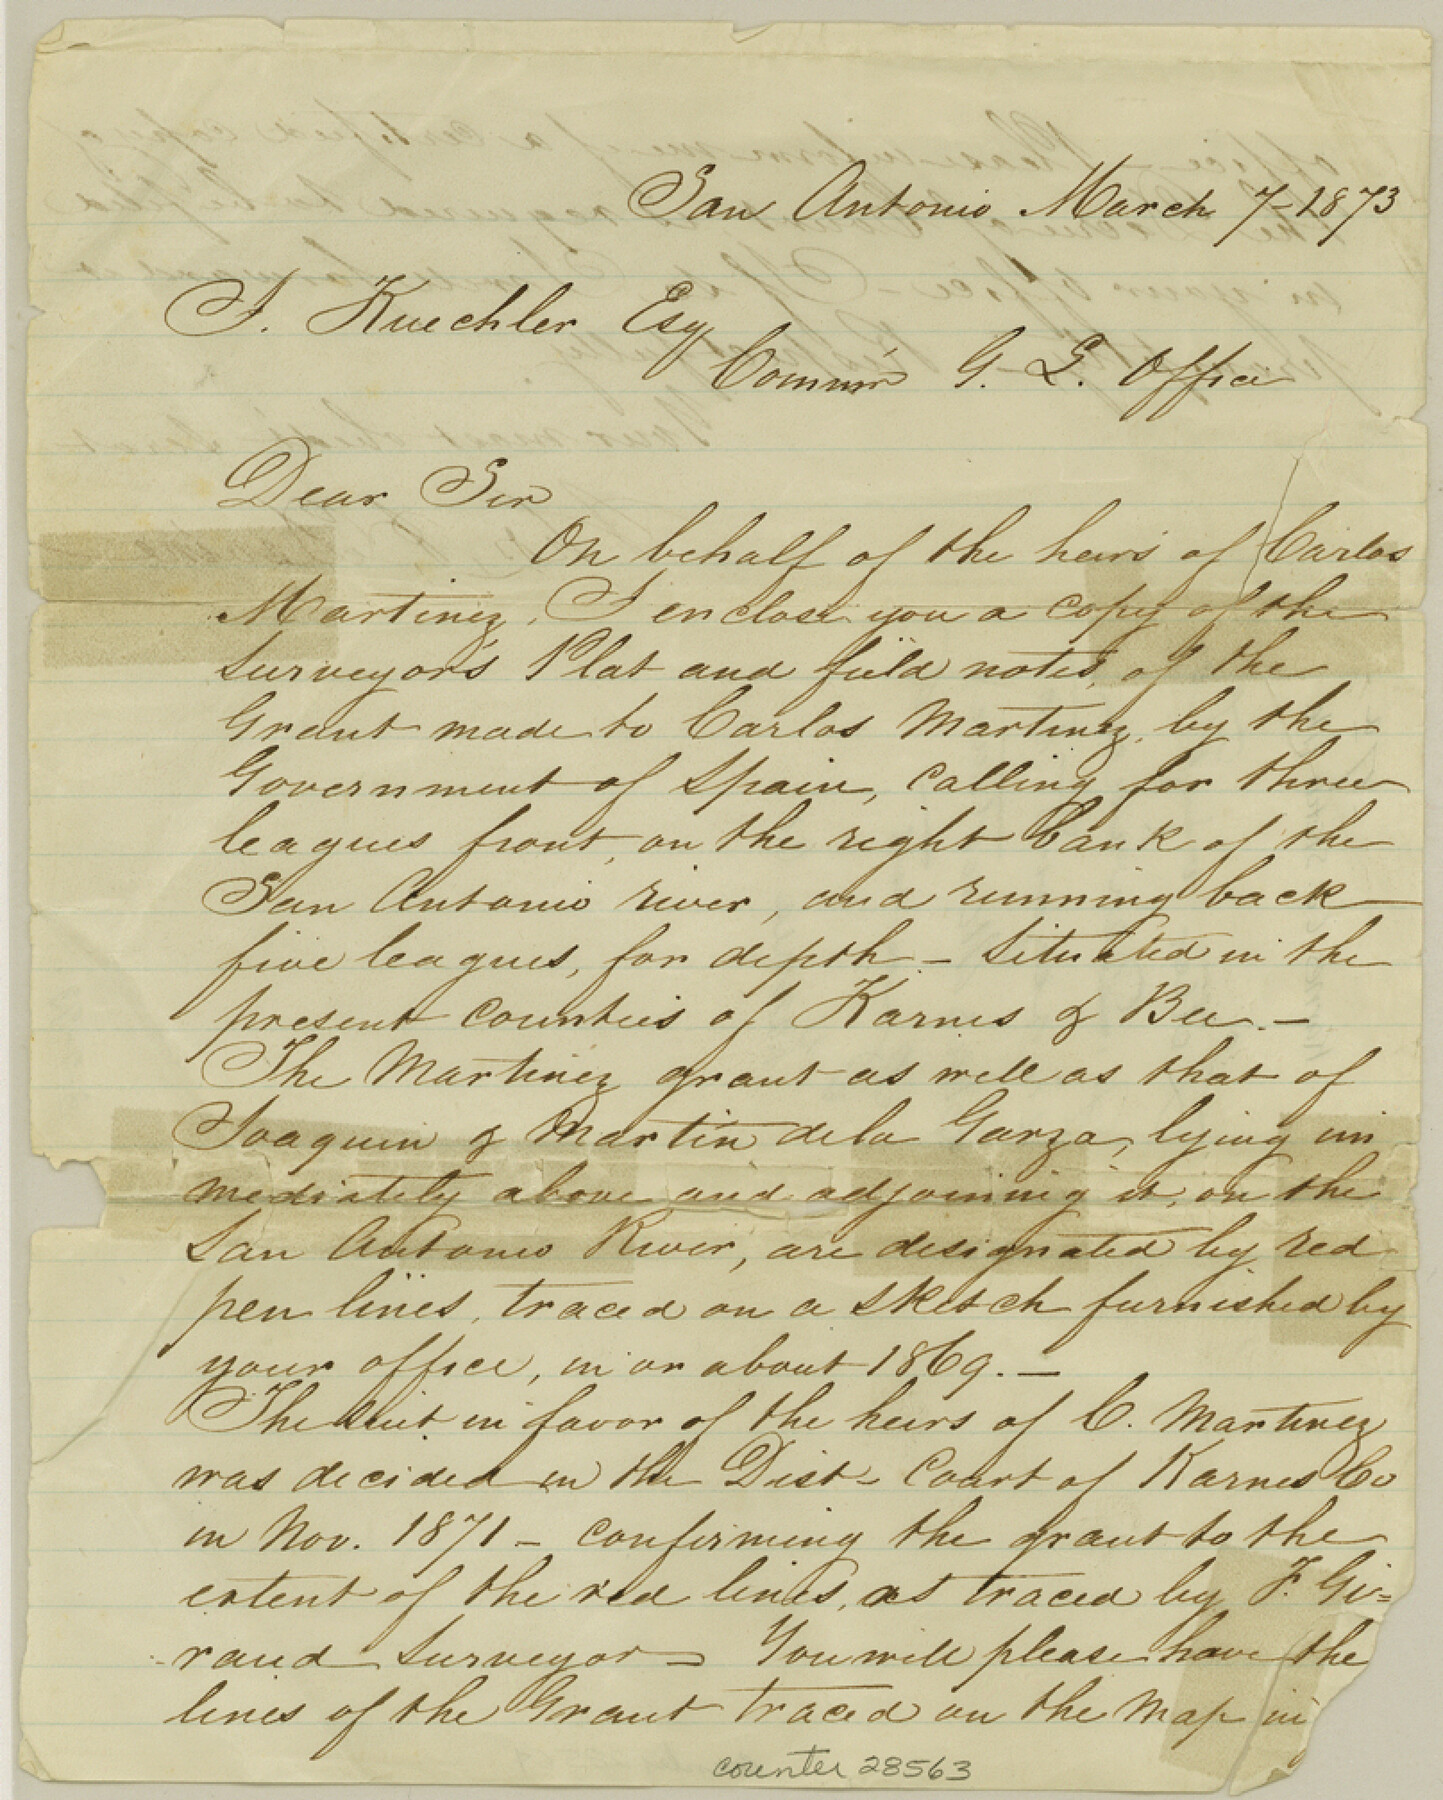 San Antonio March 7-1873
J. Kuechler Esq
Commr G. L. Office
Dear Sir
On behalf of the heirs of Carlos
Martinez, I enclose you a copy of the
Surveyor's Plat and field notes, of the
Grant made to Carlos Martinez, by the
Government of Spain, calling for three
leagues front, on the right bank of the
San Antonio river, and running back
five leagues, for depth - Situated in the
present counties of Karnes & Bee. -
The Martinez grant as well as that of
Joaquin & Martin de la Garza, lying im
mediately above and adjoining it, on the
San Antonio River, are designated by red
pen lines, traced on a sketch furnished by
your office, in or about 1869. -
The suit in favor of the heirs of C. Martinez
was decided in the Dist- Court of Karnes Co
in Nov. 1871 - confirming the grant to the
extent of the red lines, as traced by F. Gi=
raud Surveyor - You will please have the
lines of the Grant traced on the Map in
counter 28563